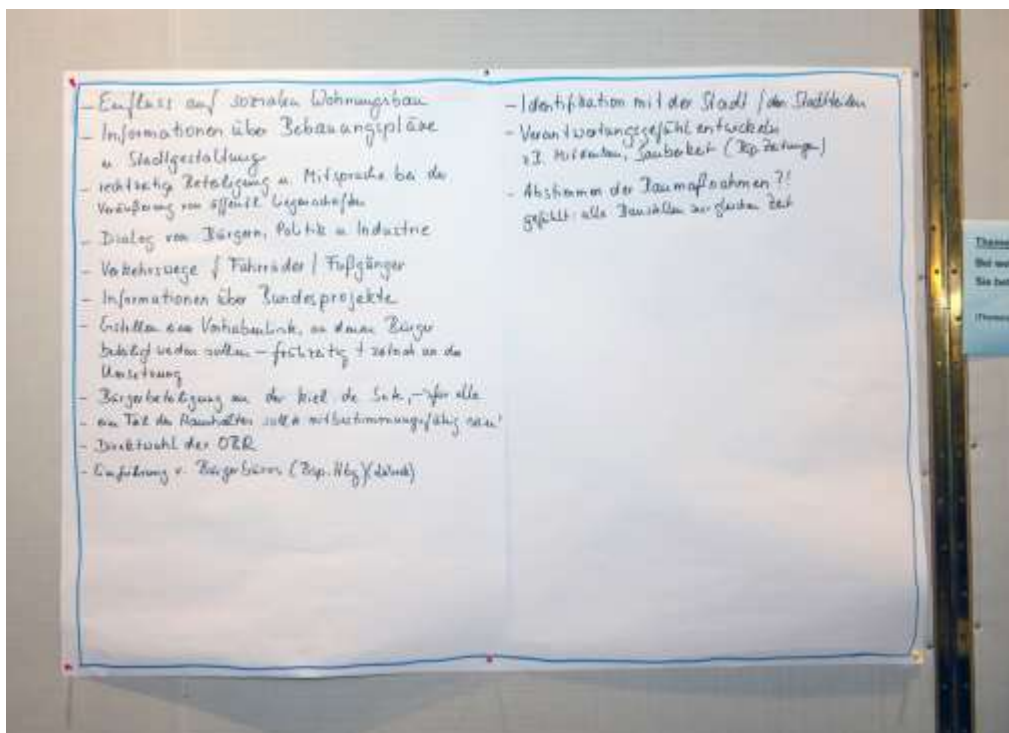 - Einfluss auf sozialen Wohnungsbau
- Informationen über Bebauungspläne
u Stadtgestaltung
- rechtzeitige Beteiligung u. Mitsprache bei der
Veräußerung von öffentl Liegenschaften
- Dialog von Bürgern, Politik u Industrie
- Verkehrswege / Fahrräder / Fußgänger
- Informationen über Bundesprojekte
- Erstellen einer Vorhabenliste, an denen Bürger
beteiligt werden sollen – frühzeitig + zeitnah an der
Umsetzung
- Bürgerbeteiligung an der kiel.de Seite, → für alle
- ein Teil des Haushaltes sollte mitbestimmungsfähig sein!
- Direktwahl der OBR
- Einführung v. Bürgerbüros (Bsp. Hbg)
- Identifikation mit der Stadt / den Stadtteilen
- Verantwortungsgefühl entwickeln
z.B. Sauberkeit (Bsp Zeitungen)
- Abstimmen der Baumaßnahmen ?!
gefühlt: alle Baustellen zur gleichen Zeit
Thema
Bei we
Sie bet